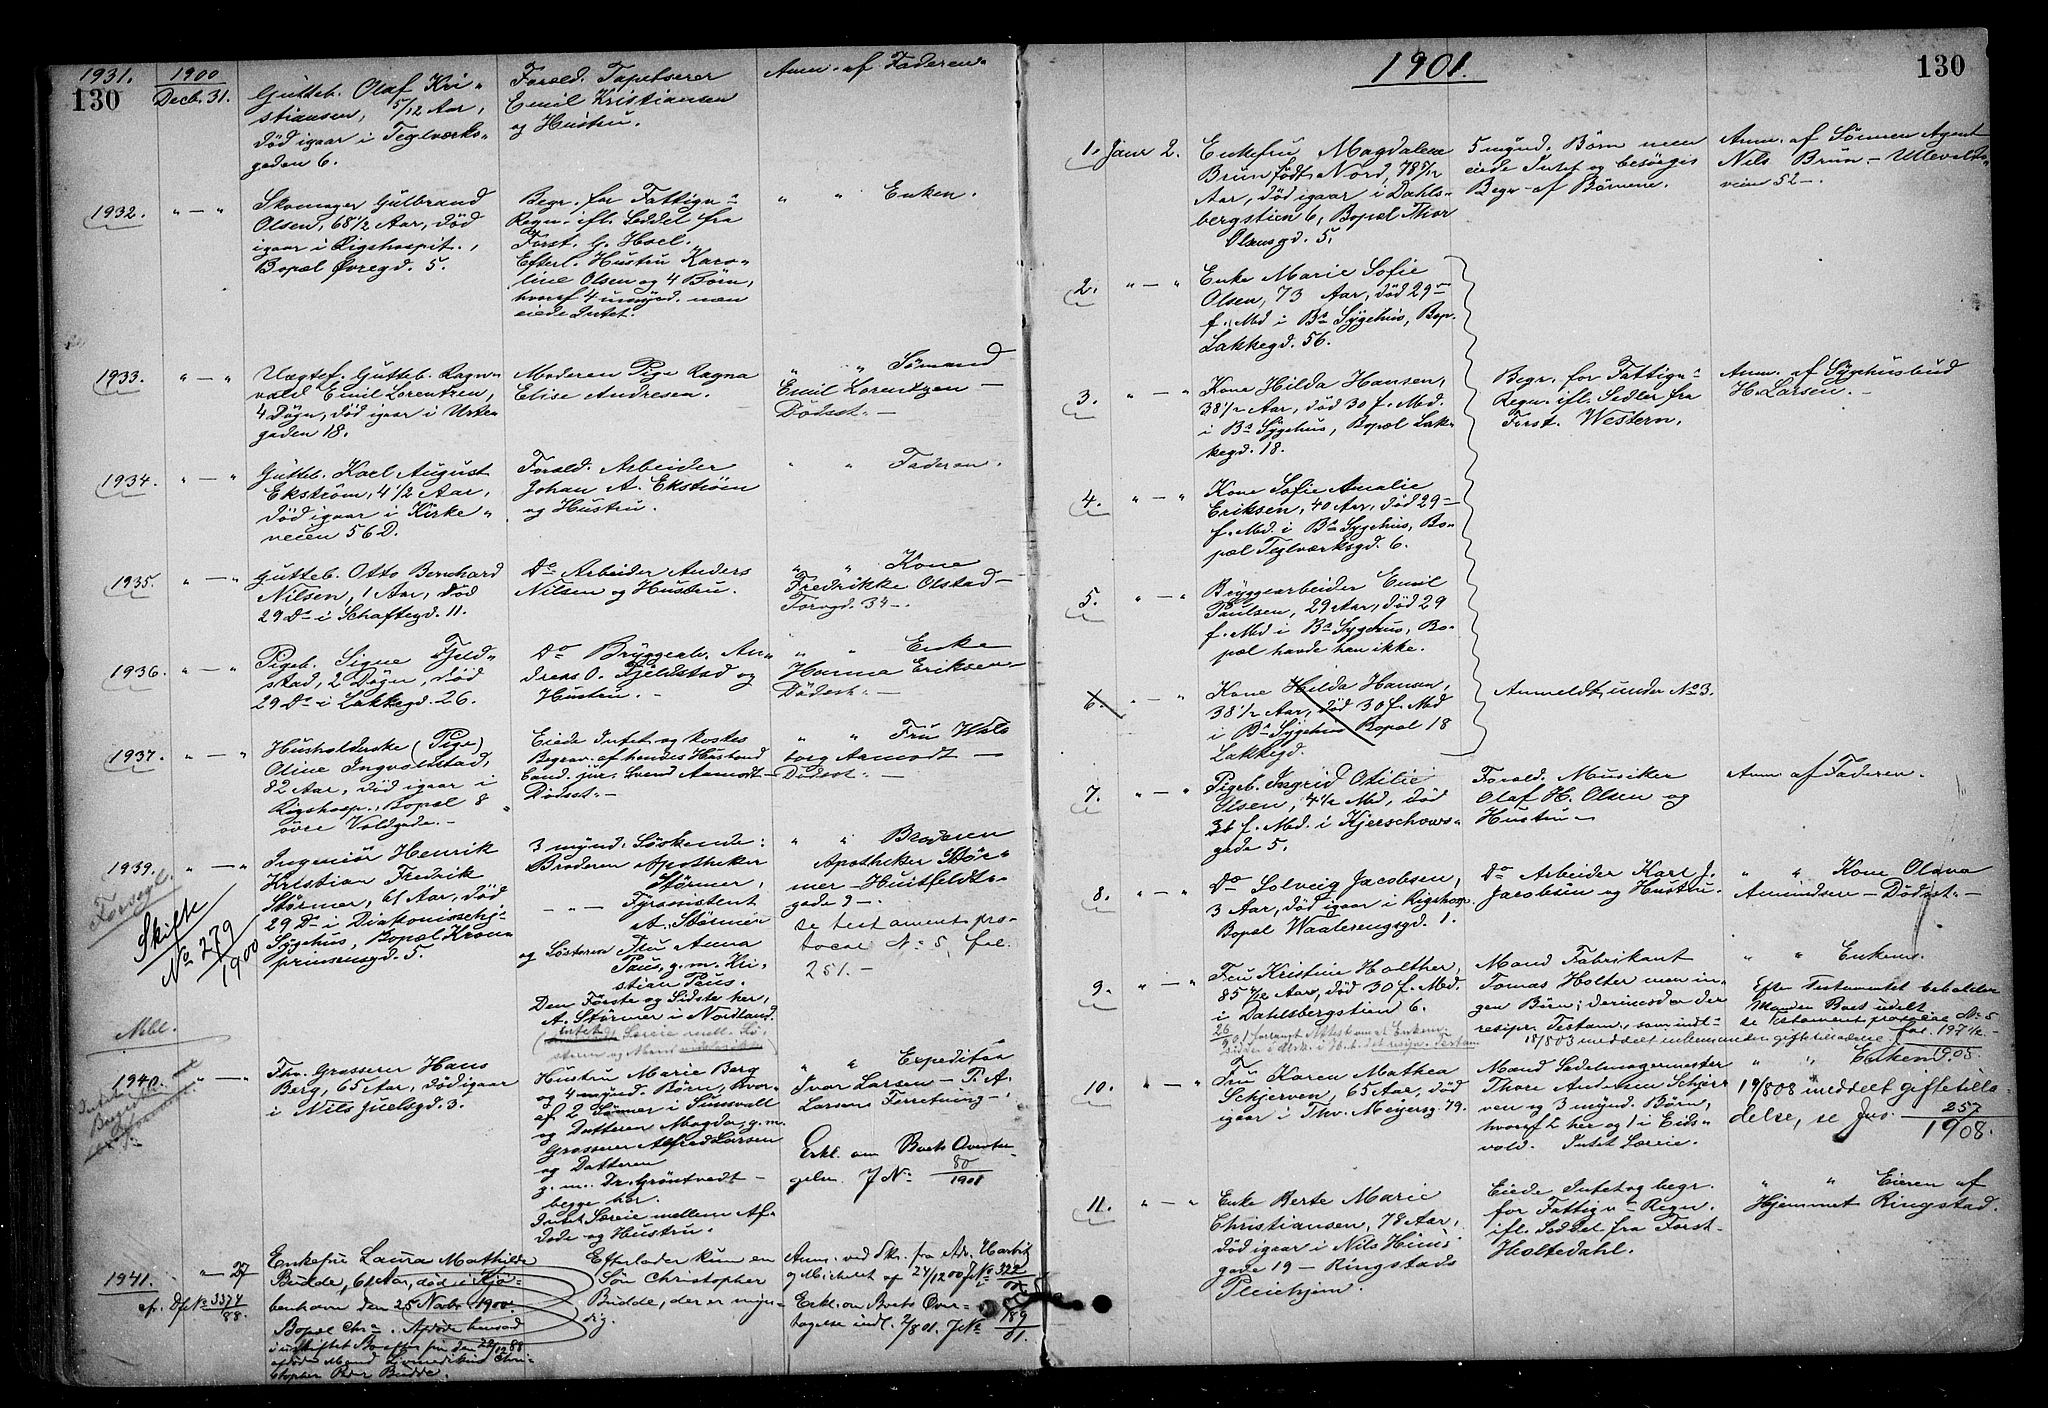 130
1931.
1900
Decb. 31.
Gutteb. Olaf Kri-
stiansen, 5/12 Aar,
død igaar i Teglværks-
gaden 6.
Foræld. Tapetserer
Emil Kristiansen
og Hustru.
Anm. af Faderen.
1932.
" — "
Skomager Gulbrand
Olsen, 68 1/2 Aar, død
igaar i Rigshospit.,
Bopæl Øvregd. 5.
Begr. for Fattign-
Regn. ifl. Seddel fra
Forst. G. Hoel.
Efterl. Hustru Karo-
line Olsen og 4 Børn,
hvoraf 4 umynd. men
eiede Intet.
" " Enken.
1933.
" — "
Uægtef. Gutteb. Ragn-
vald Emil Lorentzen,
4 Døgn, død igaar i Urte-
gaden 18.
Moderen Pige Ragna
Elise Andresen.
" " Sømand
Emil Lorentzen —
Dødsst. —
1934.
" — "
Gutteb. Karl August
Ekstrøm, 4 1/2 Aar,
død igaar i Kirke-
veien 56D.
Foræld. Arbeider
Johan A. Ekstrøm
og Hustru.
" " Faderen.
1935.
" — "
Gutteb. Otto Bernhard
Nilsen, 1 Aar, død
29 Ds i Schaftegd. 11.
Do Arbeider Anders
Nilsen og Hustru.
" " Kone
Fredrikke Olstad —
Torvgd. 34 —.
1936.
" — "
Pigeb. Signe Fjeld-
stad, 2 Døgn, død
29 Ds i Lakkegd. 26.
Do Bryggearb. An-
dreas O. Fjeldstad og
Hustru. —
" " Enke
Hanna Eriksen —
Dødsst. —
1937.
" — "
Husholderske (Pige)
Oline Ingvaldstad,
82 Aar, død igaar i
Rigshosp., Bopæl 8
øvre Voldgade. —
Eiede Intet og kostes
Begrav. af hendes Husbond
Cand. jur. Svend Aamodt —
Dødsst. —
" " Fru Wal-
borg Aamodt —
Dødsst. —
1939.
" — "
Forsegl.
Skifte
No 279/1900
Ingeniør Henrik
Kristian Fredrik
Størmer, 61 Aar, død
29 Ds i Diakonissehj.
Sygehus, Bopæl Kron-
prinsensgd. 5.
3 mynd. Søskende:
Broderen Apotheker
Størmer,
— " — Fyrassistent
A. Størmer
og Søsteren Fru Anna
Paus, g. m. Kri-
stian Paus.
Den Første og Sidste her,
A. Størmer i Nordland.
" " Broderen
Apotheker Stør-
mer — Huitfeldts-
gade 9 —.
se testament pro-
tocol No 5, fol.
251. —
Meld.
1940.
" — "
Fhv. Grosserer Hans
Berg, 65 Aar, død igaar
i Nils Juelsgd. 3.
Hustru Marie Berg
og 4 mynd. Børn, hvor-
af 2 Sønner i Sunsvall
og Datteren Magda, g. m.
Grosserer Alfred Larsen
og Datteren
g. m. Dr. Grøntvedt —
begge her.
Intet Særeie mellem Af-
døde og Hustru.
" " Expeditør
Ivar Larsen — P. A.
Larsens Forretning —.
Erkl. om Boets Overta-
gelse. J No 80/1901
1941.
" — 27
cfr. Df No 3374/88.
Enkefru Laura Mathilde
Budde, 61 Aar, død i Kjø-
benhavn den 25 Novbr 1900.
Bopæl Chra. Afdøde hensad
i uskiftet Bo efter sin den 22/12 88
afdøde Mand Livmedikus Chri-
stopher Budde.
Efterlader kun en
Søn Christopher
Budde, der er myn-
dig.
Anm. ved Skr. fra Adv. Harbitz
og Michelet af 24/12 00 J No 322/00
Erkl. om Boets Over-
tagelse indl. 2/8 01. J No 189/01.
1901.
130
1.
Janr 2.
Enkefru Magdalena
Brun født Nord, 78 5/12
Aar, død igaar i Dahls-
bergstien 6, Bopæl Thor
Olsensgd. 5.
5 mynd. Børn men
eiede Intet og besørges
Begr. af Børnene.
Anm. af Sønnen Agent
Nils Brun — Ullevolds-
veien 52 —.
2.
" — "
Enke Marie Sofie
Olsen, 73 Aar, død 29
f. Md i Bs Sygehus, Bop.
Lakkegd. 56.
3.
" — "
Kone Hilda Hansen,
38 1/2 Aar, død 30 f. Md.
i Bs Sygehus, Bopæl Lak-
kegd. 18.
Begr. for Fattign-
Regn. ifl. Sedler fra
Forst. Western.
Anm. af Sygehusbud
H. Larsen. —
4.
" — "
Kone Sofie Amalie
Eriksen, 40 Aar, død 29
f. Md. i Bs Sygehus, Bo-
pæl Teglværksgd. 6.
5.
" — "
Bryggearbeider Emil
Paulsen, 29 Aar, død 29
f. Md i Bs Sygehus, Bo-
pæl havde han ikke.
6.
" — "
Kone Hilda Hansen,
38 1/2 Aar, død 30 f. Md
i Bs Sygehus Bopæl 18
Lakkegd.
Anmeldt under No 3.
7.
" — "
Pigeb. Ingrid Otilie
Olsen, 4 1/2 Md, død
31 f. Md. i Kjerschows-
gade 5.
Foræld. Musiker
Olaf H. Olsen og
Hustru —
Anm af Faderen.
8.
" — "
Do Solveig Jacobsen,
3 Aar, død igaar i Rigshosp.
Bopæl Waalerengsgd. 1.
Do Arbeider Karl J.
Jacobsen og Hustru.
" " Kone Olava
Amundsen — Dødsst. —
9.
" — "
Fru Kristine Holther,
85 4/12 Aar, død 30 f. Md.
i Dahlsbergstien 6.
Mand Fabrikant
Tomas Holter men in-
gen Børn; derimod er der
resipr. Testam., som indl-
" " Enkem.
Efter Testamentet beholder
Manden Boet udelt.
se testament protocol No 5
fol. 197 1/2
10.
" — "
Fru Karen Mathea
Schjerven, 65 Aar, død
igaar i Thv. Meyersg 79.
Mand Sadelmagermester
Thore Andersen Schjer-
ven og 3 mynd. Børn,
hvoraf 2 her og 1 i Eids-
vold. Intet Særeie.
" " Enkem.
19/8 08 meddelt giftetilla-
delse, se Jns. 257/1908.
11.
" — "
Enke Berte Marie
Christiansen, 78 Aar,
død igaar i Nils Huus
gade 19 — Ringstads
Pleiehjem.
Eiede Intet og begr.
for Fattign-Regn.
ifl. Seddel fra Forst.
Holtedahl.
" " Eieren af
Hjemmet Ringstad.